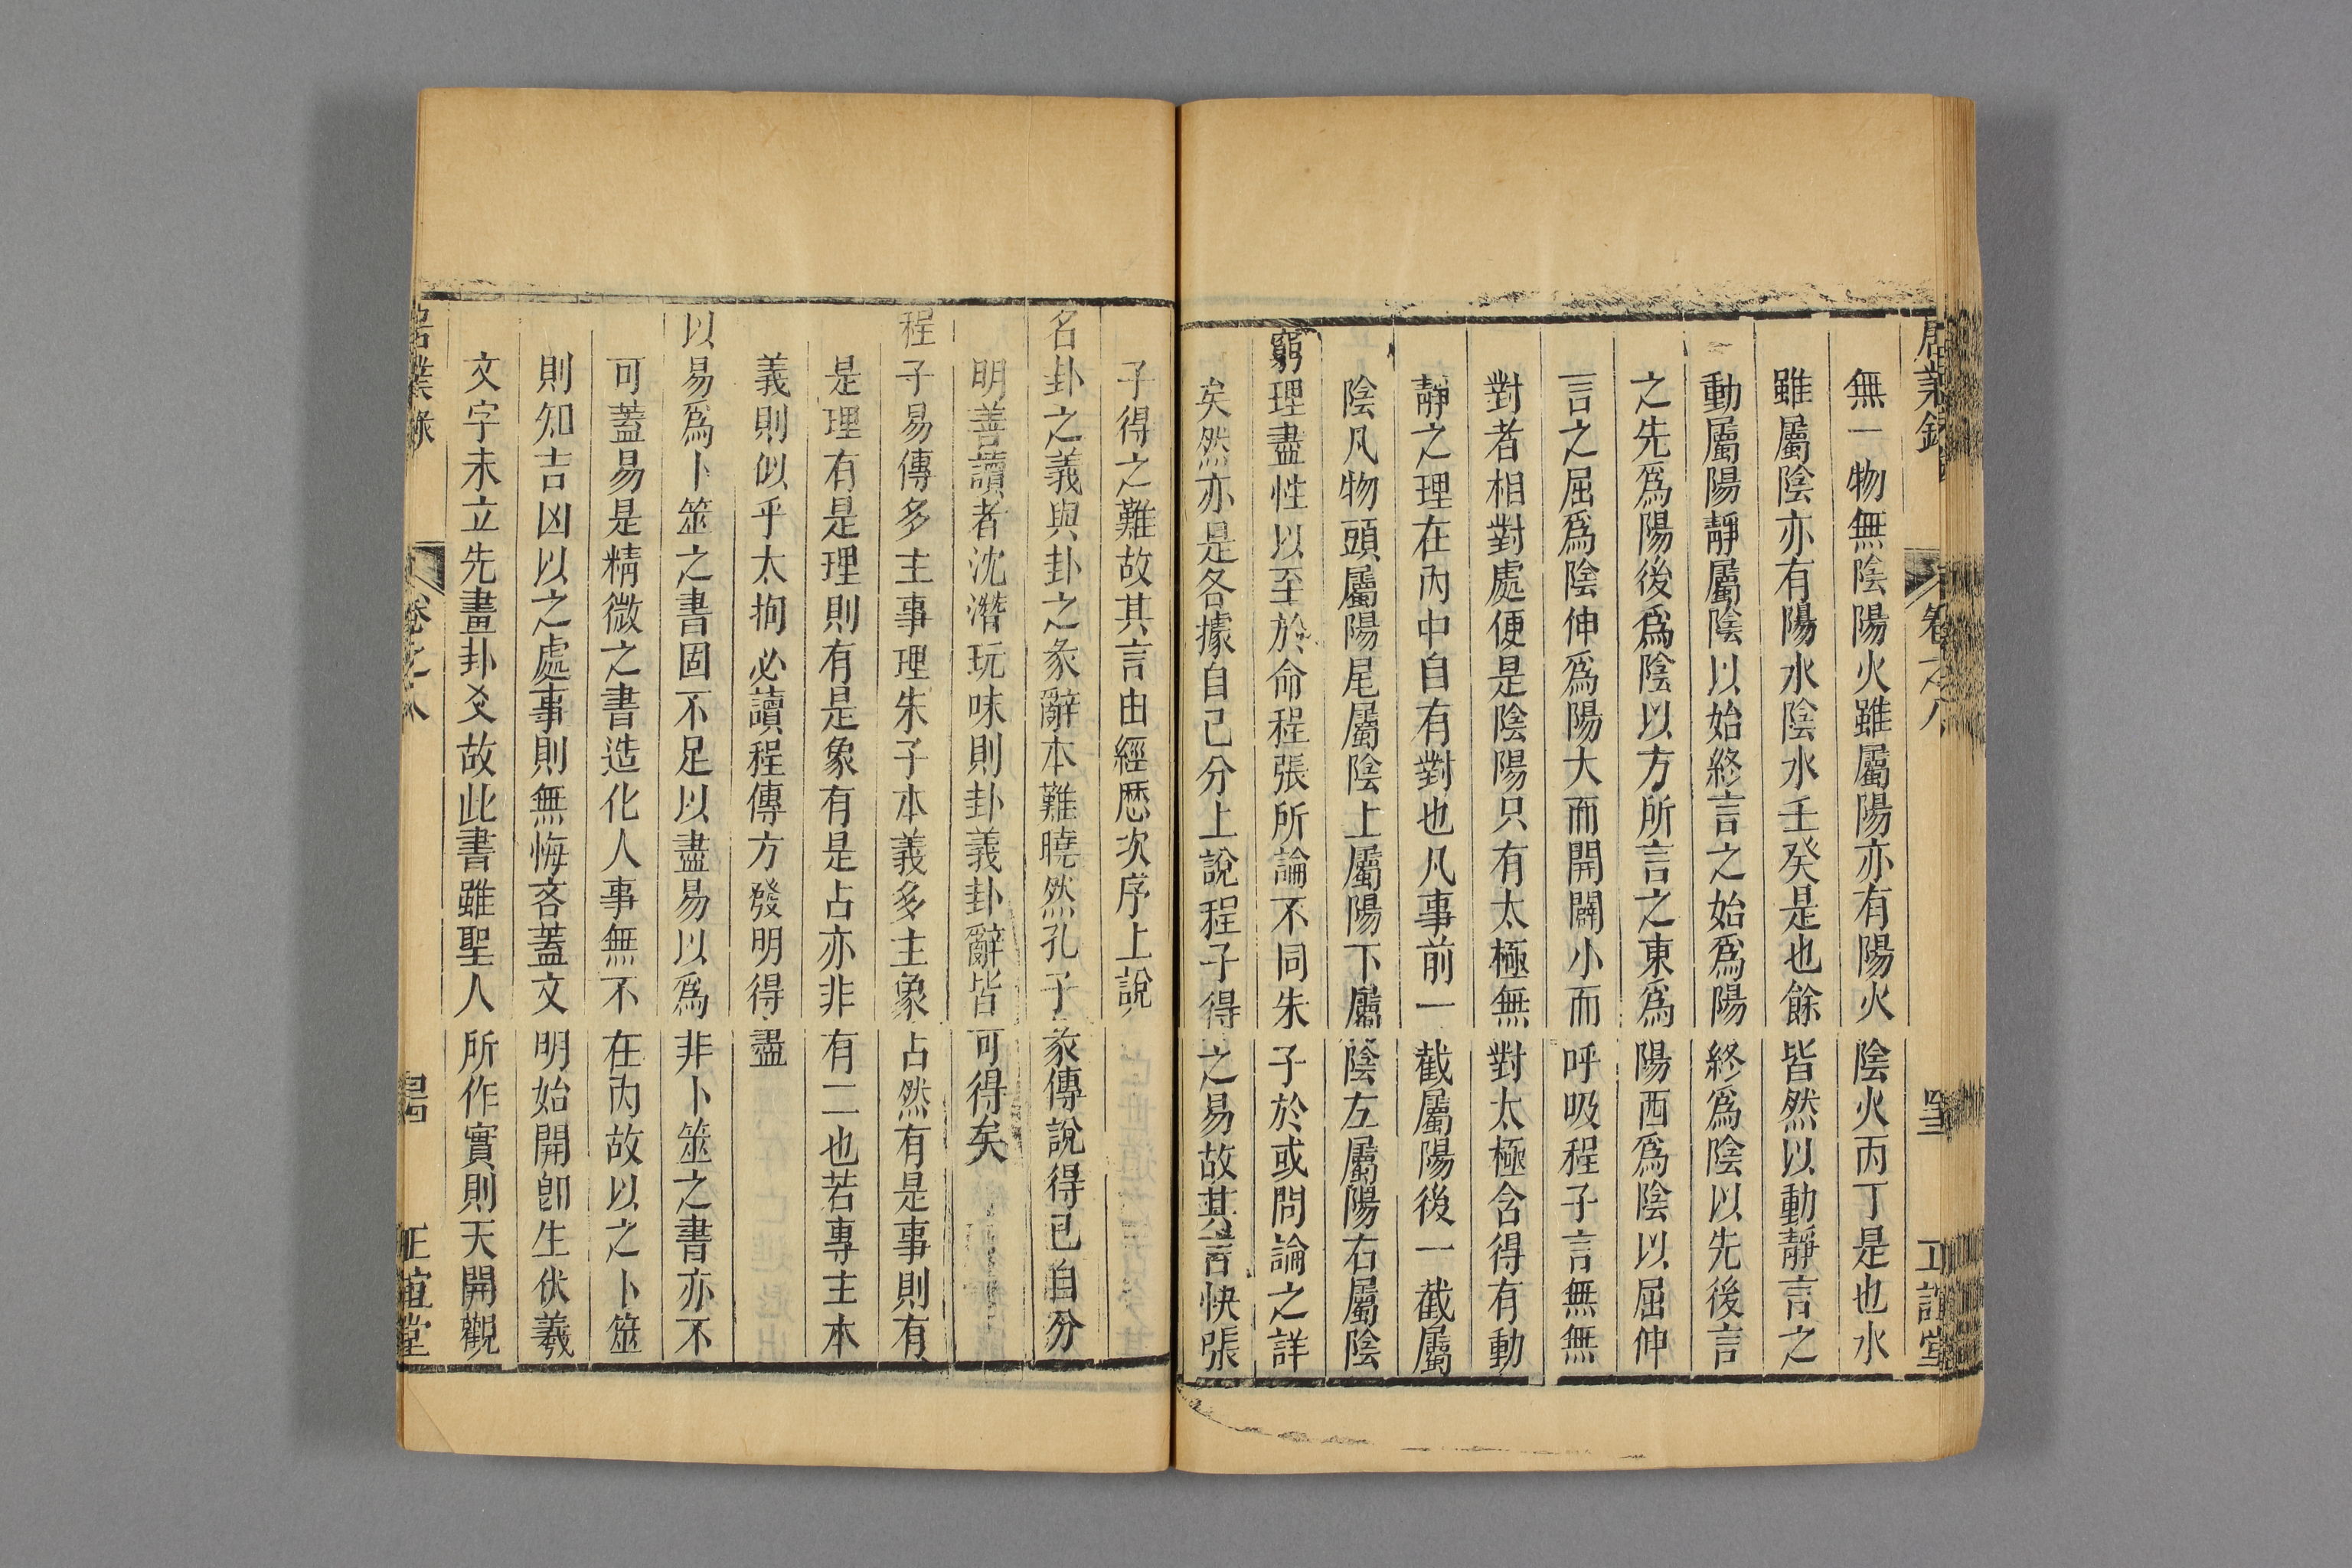 居業錄 卷之八 正誼堂
無一物無陰陽火雖屬陽亦有陽火陰火丙丁是也水
雖屬陰亦有陽水陰水壬癸是也餘皆然以動靜言之
動屬陽靜屬陰以始終言之始爲陽終爲陰以先後言
之先爲陽後爲陰以方所言之東爲陽西爲陰以屈伸
言之屈爲陰伸爲陽大而開闢小而呼吸程子言無無
對者相對處便是陰陽只有太極無對太極含得有動
靜之理在內中自有對也凡事前一截屬陽後一截屬
陰凡物頭屬陽尾屬陰上屬陽下屬陰左屬陽右屬陰
窮理盡性以至於命程張所論不同朱子於或問論之詳
矣然亦是各據自己分上說程子得之易故其言快張
子得之難故其言由經歷次序上說
名卦之義與卦之彖辭本難曉然孔子彖傳說得已自分
明善讀者沈潛玩味則卦義卦辭皆可得矣
程子易傳多主事理朱子本義多主象占然有是事則有
是理有是理則有是象有是占亦非有二也若專主本
義則似乎太拘必讀程傳方發明得盡
以易爲卜筮之書固不足以盡易以爲非卜筮之書亦不
可蓋易是精微之書造化人事無不在內故以之卜筮
則知吉凶以之處事則無悔吝蓋文明始開卽生伏羲
文字未立先畫卦爻故此書雖聖人所作實則天開觀
居業錄 卷之八 正誼堂